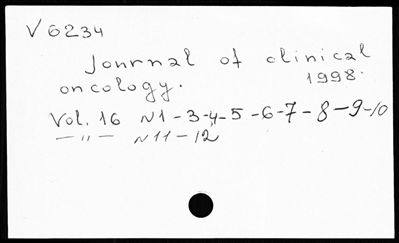 V 6234
Journal of clinical
oncology. 1998.
Vol. 16 N1-3-4-5-6-7-8-9-10
— " — N11-12